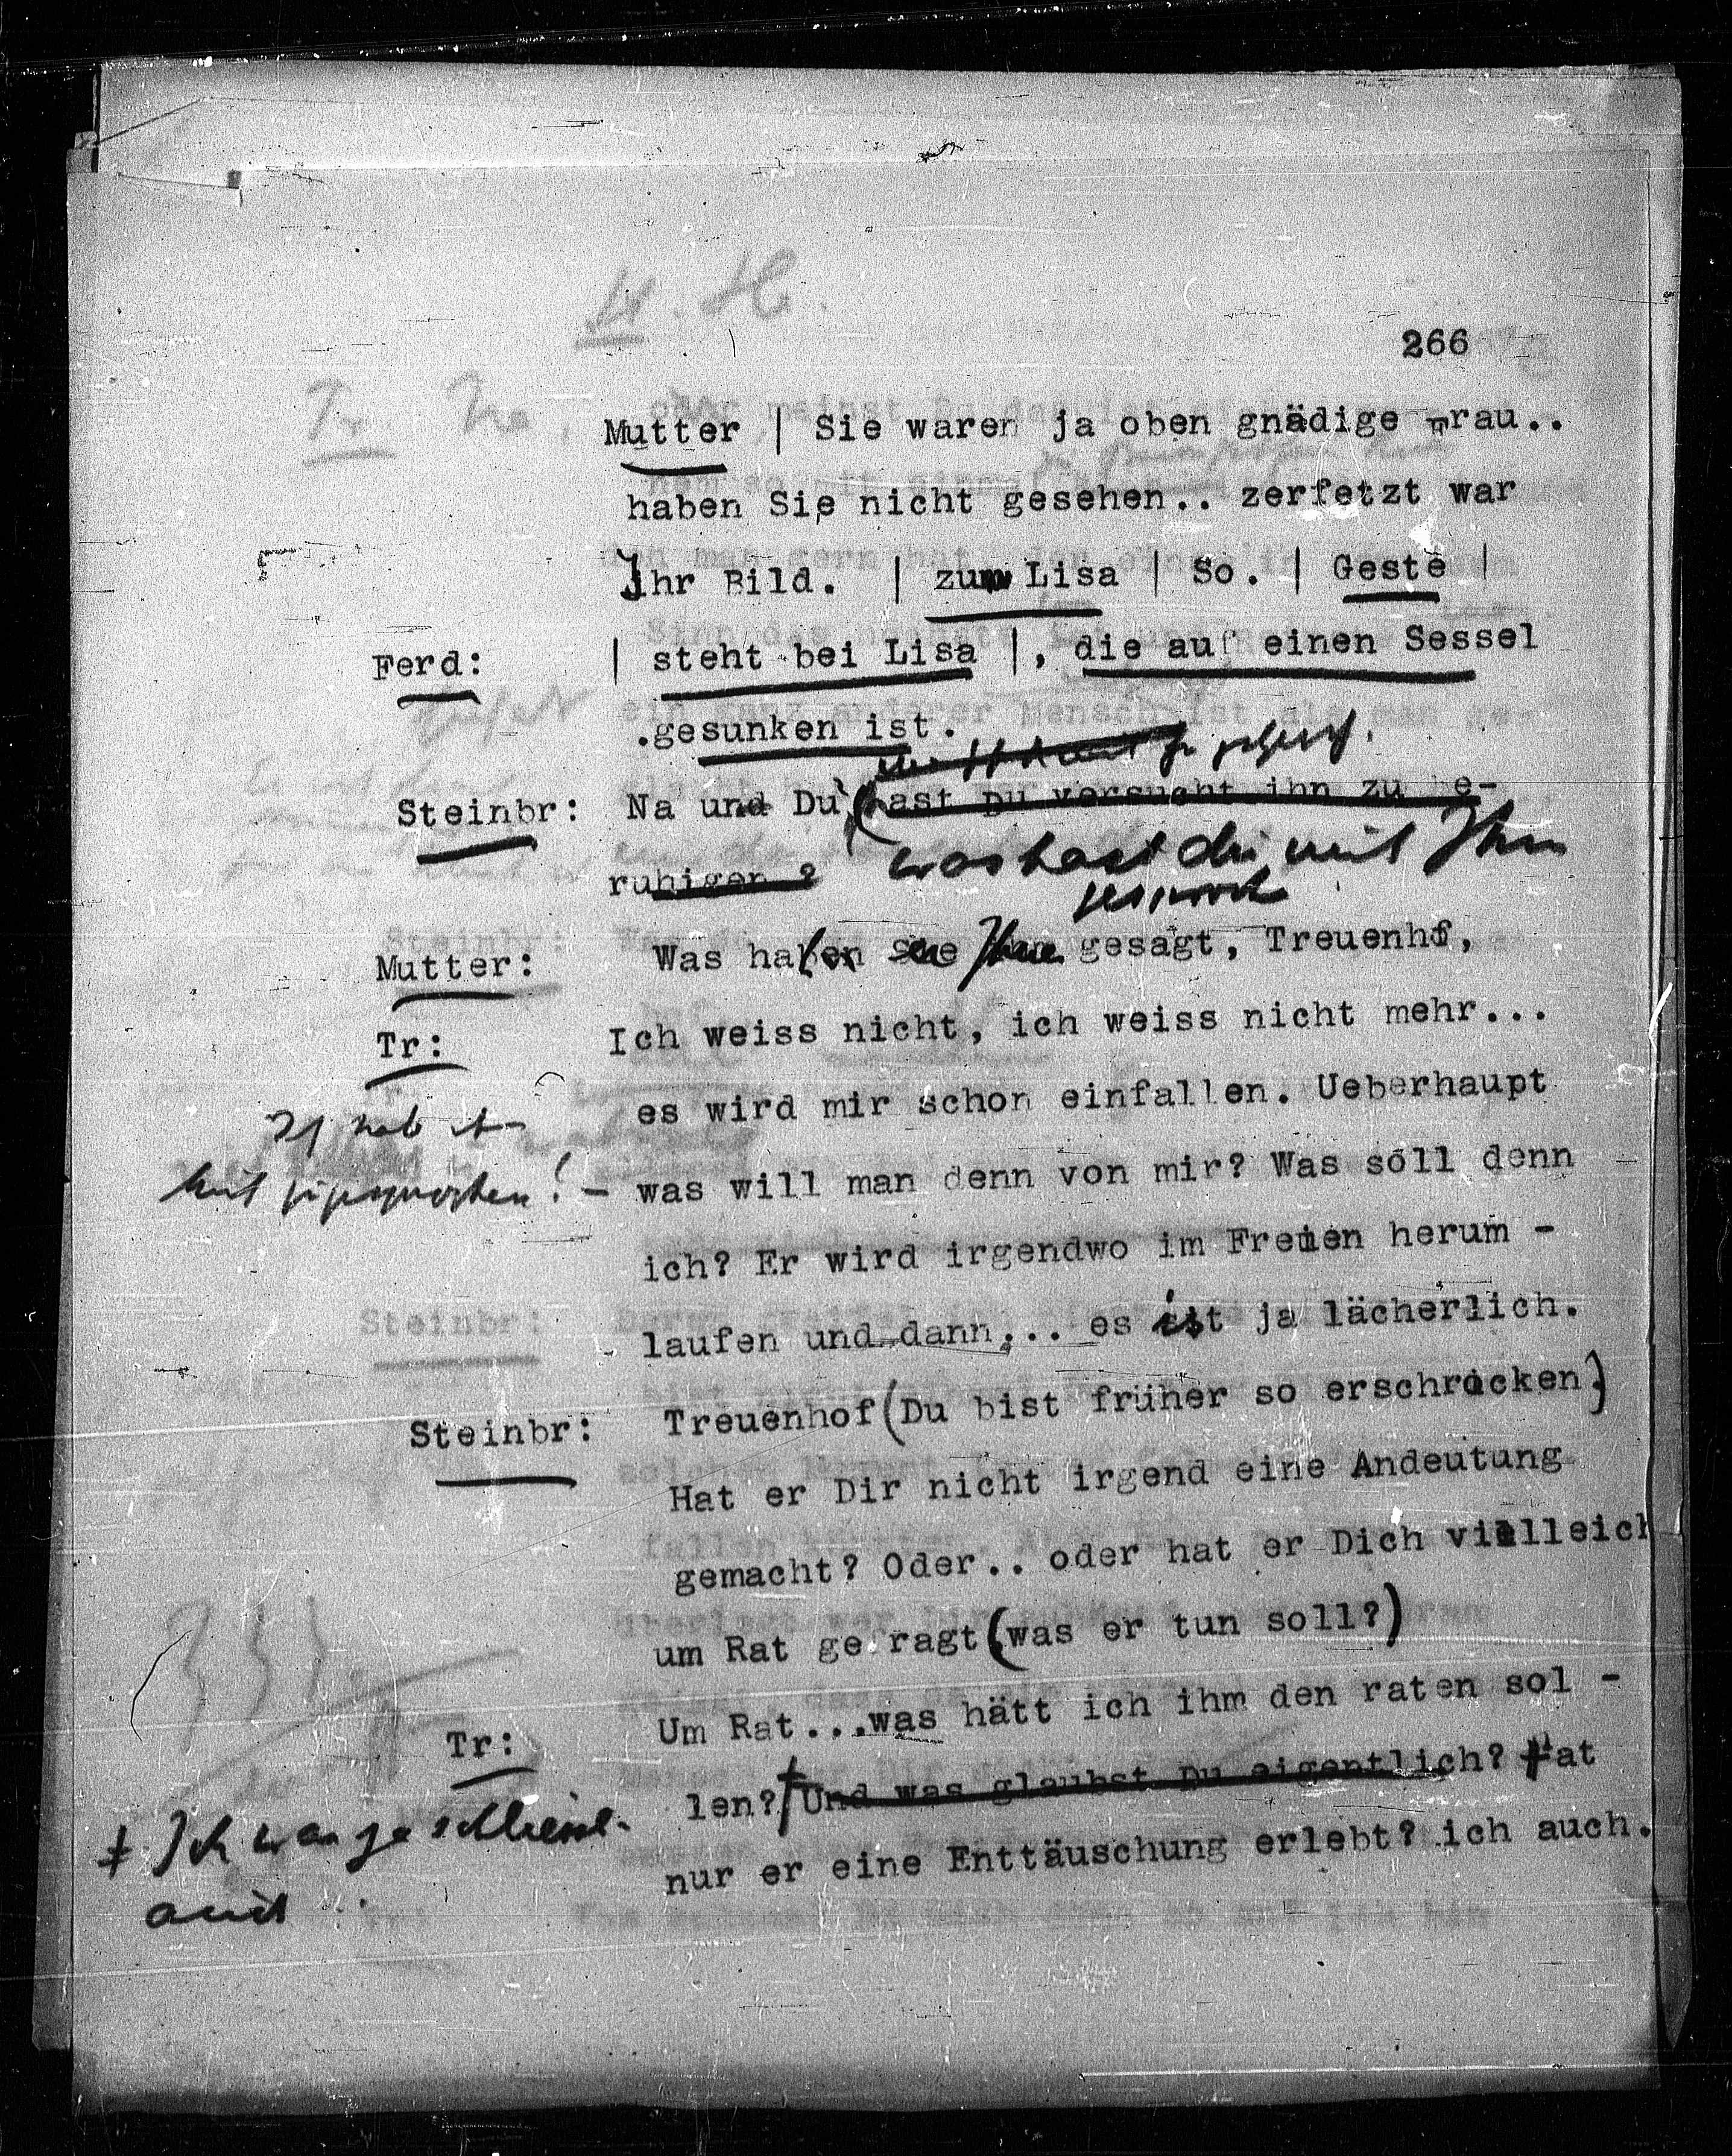 266
Mutter | Sie waren ja oben gnädige Frau..
haben Sie nicht gesehen.. zerfetzt war
Ihr Bild. | zu Lisa | So. | Geste |
Ferd: | steht bei Lisa |, die auf einen Sessel
.gesunken ist.
Steinbr: Na und Du, (hast Du versucht ihn zu be-
ruhigen ? was hast du mit Ihm
Mutter: Was haben Sie Ihm gesagt, Treuenhof,
Tr: Ich weiss nicht, ich weiss nicht mehr...
es wird mir schon einfallen. Ueberhaupt
Ich hab
nicht gesprochen! - was will man denn von mir? Was soll denn
ich? Er wird irgendwo im Freien herum -
laufen und dann... es ist ja lächerlich.
Steinbr: Treuenhof (Du bist früher so erschrocken.)
Hat er Dir nicht irgend eine Andeutung
gemacht? Oder.. oder hat er Dich vielleich
um Rat ge ragt (was er tun soll?)
Tr: Um Rat...was hätt ich ihm den raten sol -
len? Und was glaubst Du eigentlich? Hat
Ich war ja schliessl.
auch
nur er eine Enttäuschung erlebt? ich auch.